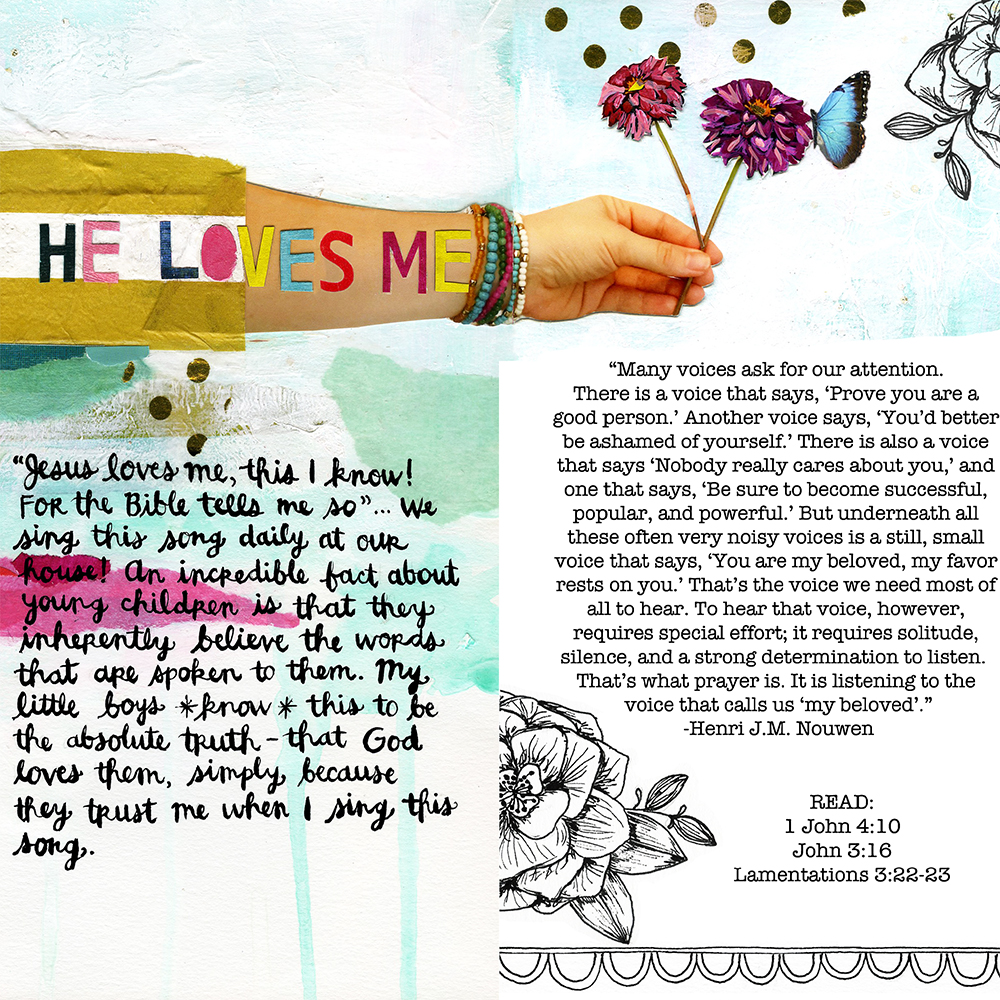 HE LOVES ME
“Jesus loves me, this I know!
For the Bible tells me so”... we
sing this song daily at our
house! An incredible fact about
young children is that they
inherently believe the words
that are spoken to them. My
little boys *know* this to be
the absolute truth - that God
loves them, simply because
they trust me when I sing this
song.
“Many voices ask for our attention.
There is a voice that says, ‘Prove you are a
good person.’ Another voice says, ‘You’d better
be ashamed of yourself.’ There is also a voice
that says ‘Nobody really cares about you,’ and
one that says, ‘Be sure to become successful,
popular, and powerful.’ But underneath all
these often very noisy voices is a still, small
voice that says, ‘You are my beloved, my favor
rests on you.’ That’s the voice we need most of
all to hear. To hear that voice, however,
requires special effort; it requires solitude,
silence, and a strong determination to listen.
That’s what prayer is. It is listening to the
voice that calls us ‘my beloved’.”
-Henri J.M. Nouwen
READ:
1 John 4:10
John 3:16
Lamentations 3:22-23